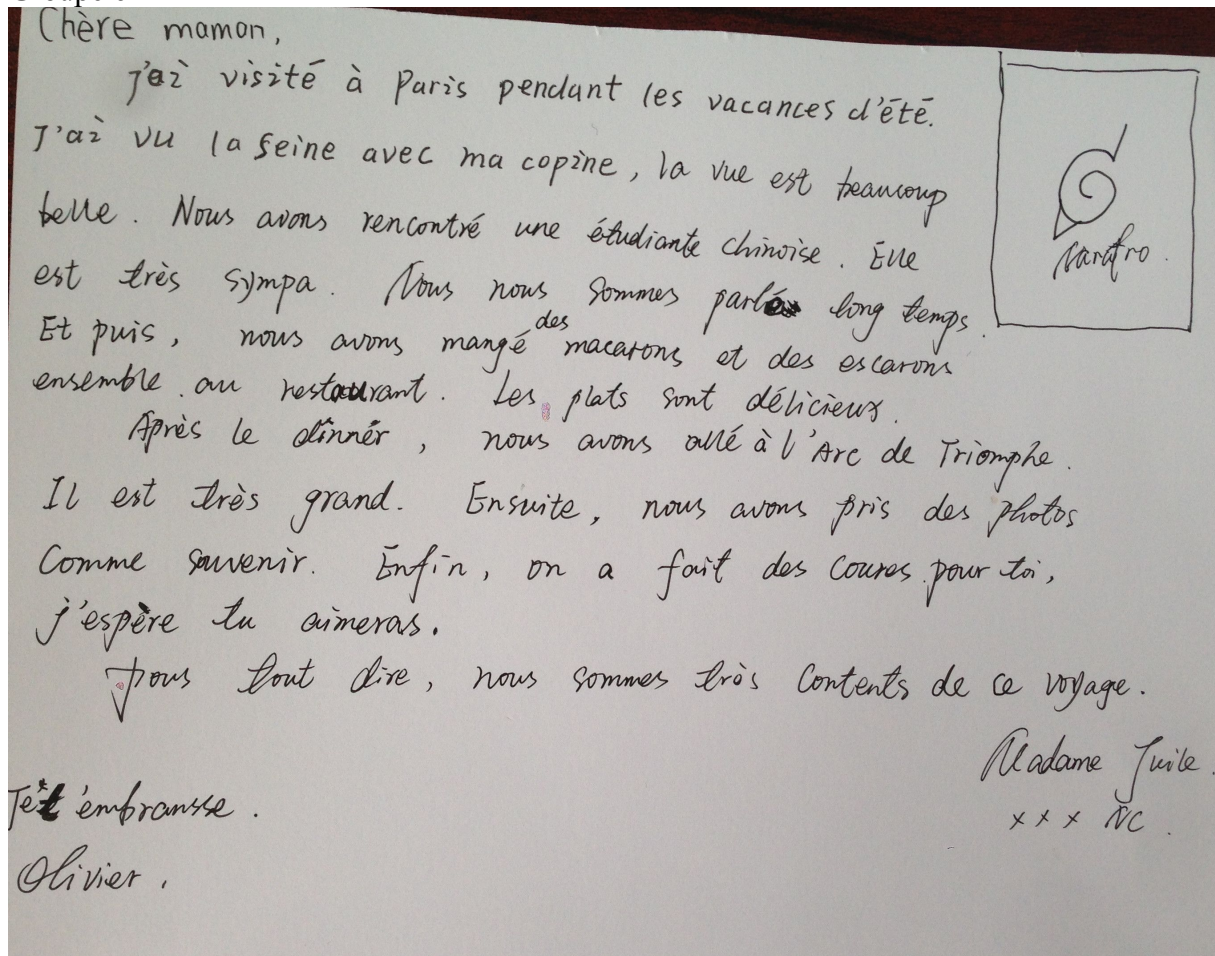 Chère maman,
J'ai visité à Paris pendant les vacances d'été.
J'ai vu la seine avec ma copine, la vue est beaucoup
belle. Nous avons rencontré une étudiante chinoise. Elle
est très sympa. Nous nous sommes parlé long temps.
Et puis, nous avons mangé des macarons et des escarons
ensemble au restaurant. Les plats sont délicieux.
Après le dînnér, nous avons allé à l'Arc de Triomphe.
Il est très grand. Ensuite, nous avons pris des photos
Comme souvenir. Enfin, on a fait des courses pour toi,
j'espère tu aimeras.
tout dire, nous sommes très contents de ce voyage.
Madame
xxx NC.
Je t'embransse.
Olivier.